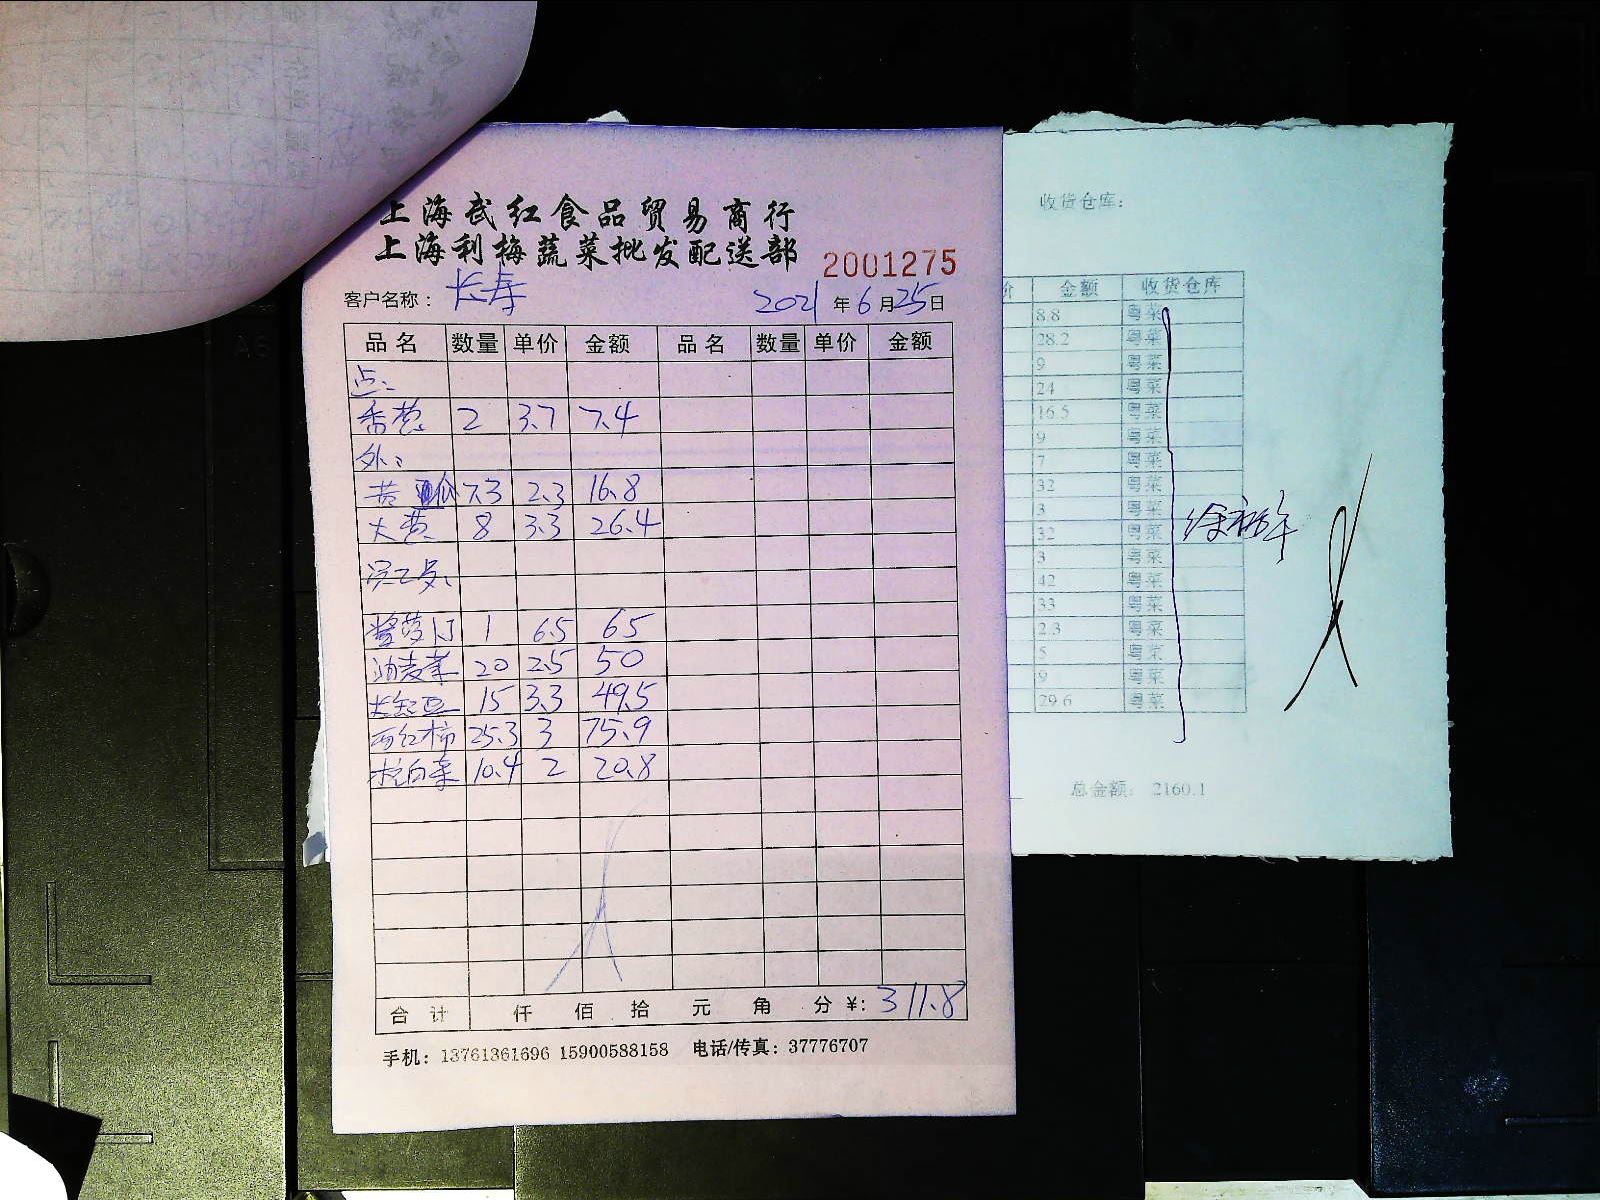 上海武红食品贸易商行
上海利梅蔬菜批发配送部
2001275
客户名称： 长寿
2021 年 6 月 25 日
品名 数量 单价 金额 品名 数量 单价 金额
点：
香葱 2 3.7 7.4
外：
黄 7.3 2.3 16.8
大黄 8 3.3 26.4
员工餐：
1 6.5 65
油麦菜 20 2.5 50
长豇豆 15 3.3 49.5
西红柿 25.3 3 75.9
杭白菜 10.4 2 20.8
合计 仟 佰 拾 元 角 分 ¥: 311.8
手机：13761361696 15900588158 电话/传真：37776707
收货仓库：
价 金额 收货仓库
8.8 粤菜
28.2 粤菜
9 粤菜
24 粤菜
16.5 粤菜
9 粤菜
7 粤菜
32 粤菜
3 粤菜
32 粤菜
3 粤菜
42 粤菜
33 粤菜
2.3 粤菜
5 粤菜
9 粤菜
29.6 粤菜
总金额： 2160.1